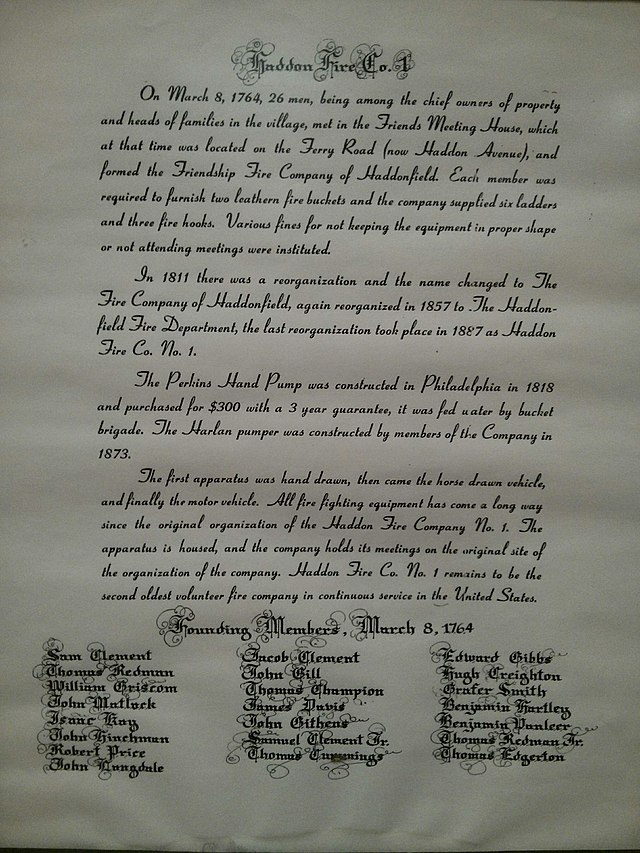 Haddon Fire Co. 1
On March 8, 1764, 26 men, being among the chief owners of property
and heads of families in the village, met in the Friends Meeting House, which
at that time was located on the Ferry Road (now Haddon Avenue), and
formed the Friendship Fire Company of Haddonfield. Each member was
required to furnish two leathern fire buckets and the company supplied six ladders
and three fire hooks. Various fines for not keeping the equipment in proper shape
or not attending meetings were instituted.
In 1811 there was a reorganization and the name changed to The
Fire Company of Haddonfield, again reorganized in 1857 to The Haddon-
field Fire Department, the last reorganization took place in 1887 as Haddon
Fire Co. No. 1.
The Perkins Hand Pump was constructed in Philadelphia in 1818
and purchased for $300 with a 3 year guarantee, it was fed water by bucket
brigade. The Harlan pumper was constructed by members of the Company in
1873.
The first apparatus was hand drawn, then came the horse drawn vehicle,
and finally the motor vehicle. All fire fighting equipment has come a long way
since the original organization of the Haddon Fire Company No. 1. The
apparatus is housed, and the company holds its meetings on the original site of
the organization of the company. Haddon Fire Co. No. 1 remains to be the
second oldest volunteer fire company in continuous service in the United States.
Founding Members, March 8, 1764
Sam Clement
Thomas Redman
William Griscom
John Matlock
Isaac Kay
John Hinchman
Robert Price
John Langdale
Jacob Clement
John Gill
Thomas Champion
James Davis
John Githens
Samuel Clement Jr.
Thomas Cummings
Edward Gibbs
Hugh Creighton
Smith
Benjamin Hartley
Benjamin
Thomas Redman Jr.
Thomas Edgerton